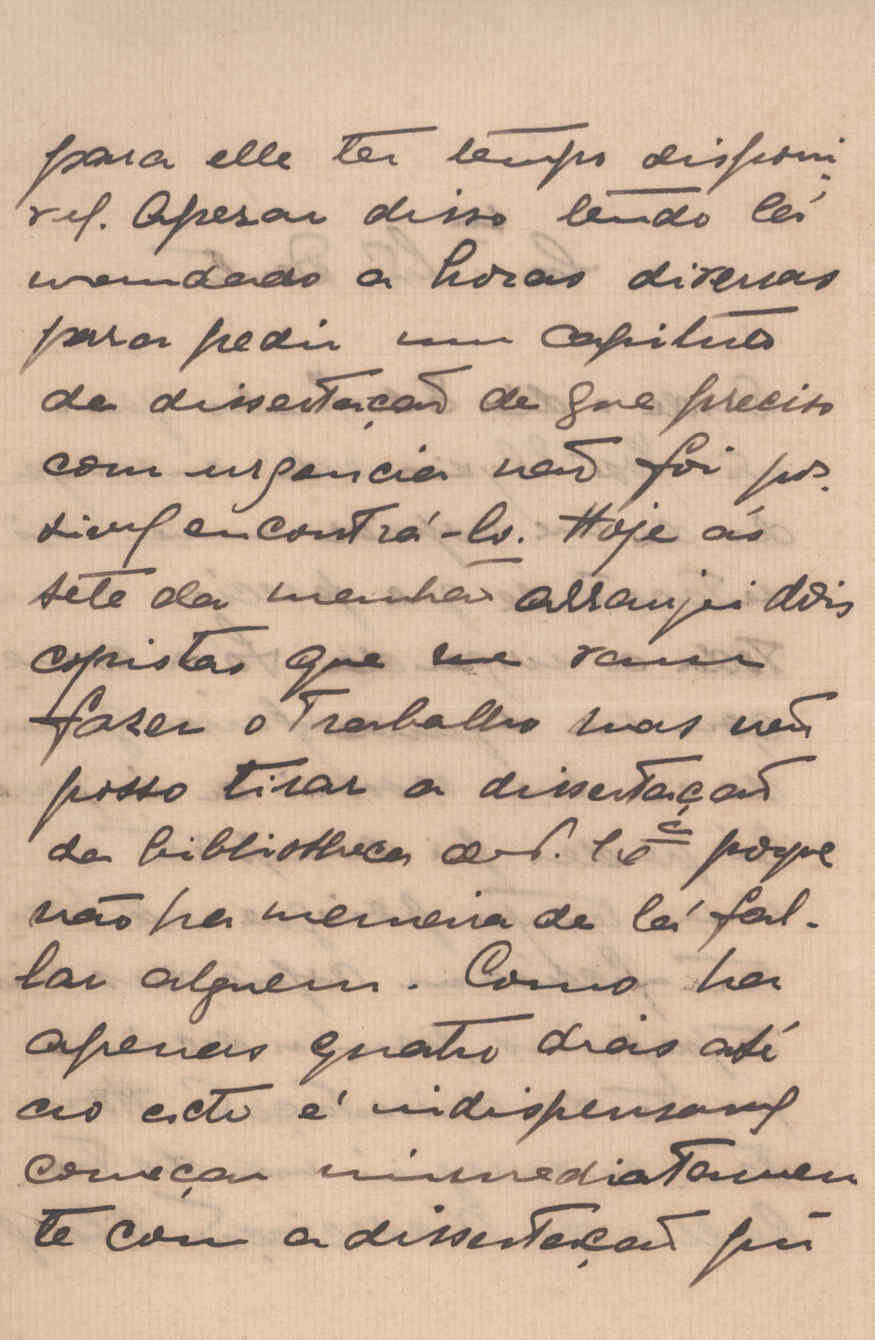 para elle ter tempo disponi
vel. Apesar disso tendo lá
mandado a horas diversas
para pedir um capitulo
da dissertação de que preciso
com urgencia não foi pos
sivel encontrá-lo. Hoje ás
sete da manhã arranjei dois
copistas que me vam
fazer o trabalho mas não
posso tirar a dissertação
da bibliotheca de V. Exª porque
não ha maneira de lá fal-
lar alguem. Como ha
apenas quatro dias até
ao acto é indispensavel
começar immediatamen
te com a dissertação pũ